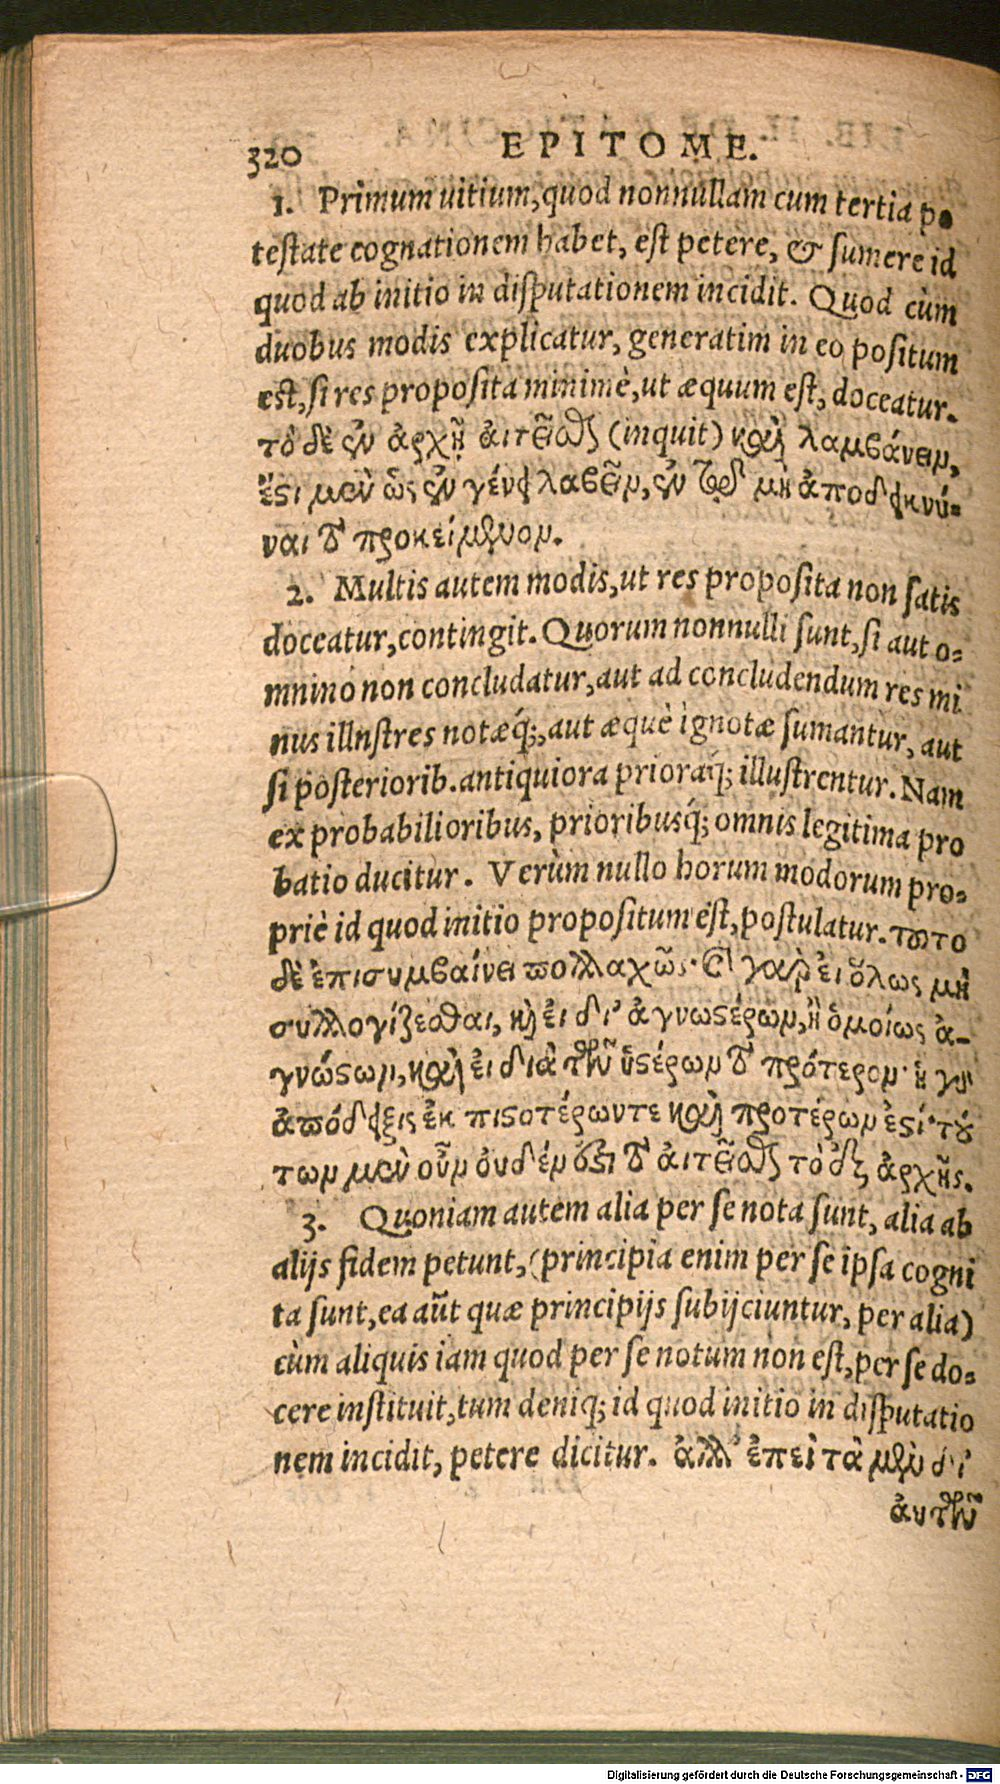 320 EPITOME.
1. Primum uitium, quod nonnullam cum tertia po
testate cognationem habet, est petere, & sumere id
quod ab initio in disputationem incidit. Quod cùm
duobus modis explicatur, generatim in eo positum
est, si res proposita minimè, ut æquum est, doceatur.
τὸ δὲ ἐν ἀρχῇ αἰτεῖσθαι (inquit) καὶ λαμβάνειν,
ἔστι μὲν ὡς ἐν γένει λαβεῖν, ἐν τῷ μὴ ἀποδεικνύ-
ναι τὸ προκείμενον.
2. Multis autem modis, ut res proposita non satis
doceatur, contingit. Quorum nonnulli sunt, si aut o-
mnino non concludatur, aut ad concludendum res mi
nus illnstres notæq́;, aut æquè ignotæ sumantur, aut
si posteriorib. antiquiora prioraq́; illustrentur. Nam
ex probabilioribus, prioribusq́; omnis legitima pro
batio ducitur. Verùm nullo horum modorum pro-
priè id quod initio propositum est, postulatur. τοῦτο
δὲ ἐπισυμβαίνει πολλαχῶς· καὶ γὰρ εἰ ὅλως μὴ
συλλογίζεσθαι, καὶ εἰ δι' ἀγνωστέρων, ἢ ὁμοίως ἀ-
γνώστων, καὶ εἰ διὰ τῶν ὑστέρων τὸ πρότερον· ἡ γὰρ
ἀπόδειξις ἐκ πιστοτέρων τε καὶ προτέρων ἐστί· τού
των μὲν οὖν οὐδέν ἐστι τὸ αἰτεῖσθαι τὸ ἐξ ἀρχῆς.
3. Quoniam autem alia per se nota sunt, alia ab
alijs fidem petunt, (principia enim per se ipsa cogni
ta sunt, ea aũt quæ principijs subijciuntur, per alia)
cùm aliquis iam quod per se notum non est, per se do-
cere instituit, tum deniq; id quod initio in disputatio
nem incidit, petere dicitur. ἀλλ' ἐπεὶ τὰ μὲν δι'
αὑτῶν
Digitalisierung gefördert durch die Deutsche Forschungsgemeinschaft - DFG